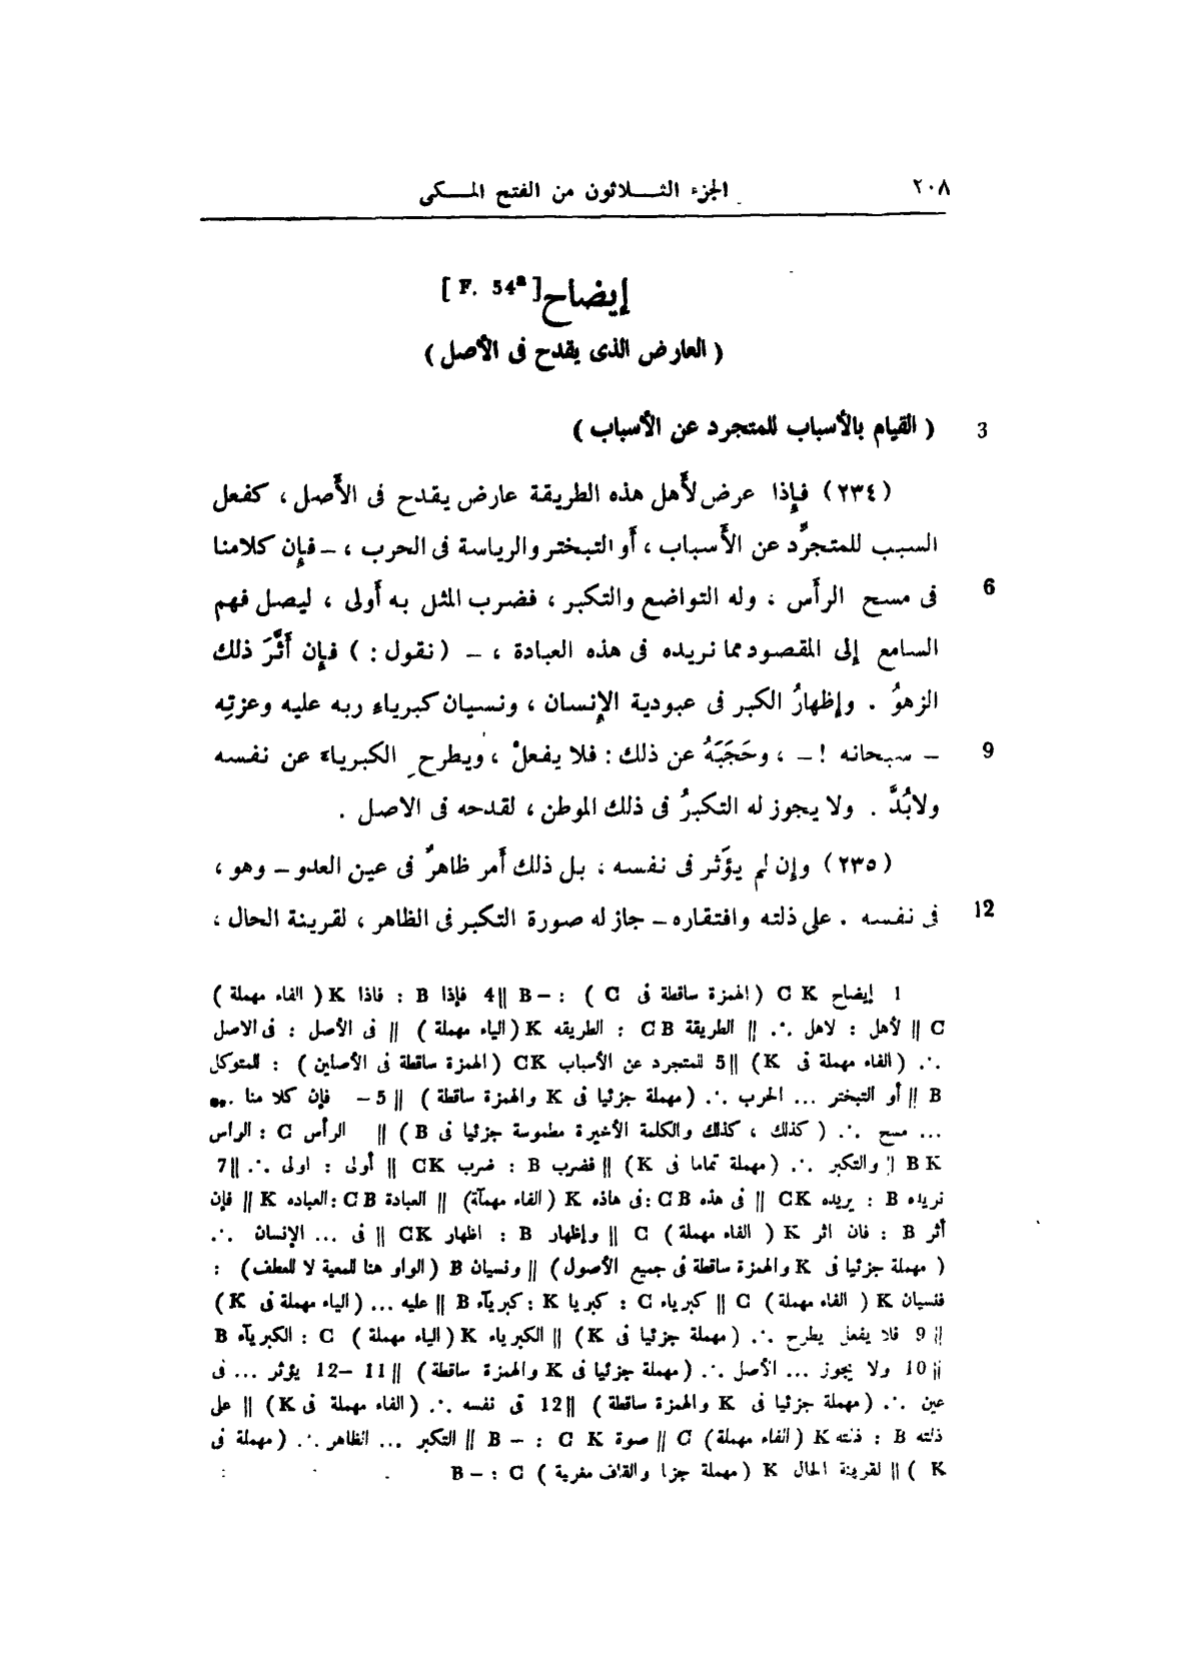 ٢٠٨ الجزء الثلاثون من الفتح المكى
إيضاح [ F. 54ª ]
( العارض الذى يقدح فى الأصل )
3 ( القيام بالأسباب للمتجرد عن الأسباب )
(٢٣٤) فإذا عرض لأهل هذه الطريقة عارض يقدح فى الأَصل ، كفعل
السبب للمتجرِّد عن الأَسباب ، أَو التبختر والرياسة فى الحرب ، ــ فإن كلامنا
6 فى مسح الرأَس ، وله التواضع والتكبر ، فضرب المثل به أَولى ، ليصل فهم
السامع إلى المقصود مما نريده فى هذه العبادة ، ــ ( نقول : ) فإن أَثَّرَ ذلك
الزهوُ . وإظهارُ الكبر فى عبودية الإنسان ، ونسيان كبرياءِ ربه عليه وعزتِه
9 ــ سبحانه ! ــ ، وحَجَبَهُ عن ذلك : فلا يفعلْ ، ويطرح الكبرياءَ عن نفسه
ولابُدَّ . ولا يجوز له التكبرُ فى ذلك الموطن ، لقدحه فى الاصل .
(٢٣٥) وإن لم يؤَثر فى نفسه ، بل ذلك أَمر ظاهرٌ فى عين العدو ــ وهو ،
12 فى نفسه . على ذلته وافتقاره ــ جاز له صورة التكبر فى الظاهر ، لقرينة الحال ،
1 إيضاح C K (الهمزة ساقطة فى C ) : – B || 4 فإذا B : فاذا K ( الفاء مهملة )
C || لأهل : لاهل ∴ || الطريقة C B : الطريقه K (الياء مهملة ) || فى الأصل : فى الاصل
∴ (الفاء مهملة فى K) || 5 للمتجرد عن الأسباب CK (الهمزة ساقطة فى الأصلين ) : للمتوكل
B || أو التبختر ... الحرب ∴ (مهملة جزئيا فى K والهمزة ساقطة ) || 5 – فإن كلا منا ...
... مسح ∴ ( كذلك ، كذلك والكلمة الأخيرة مطموسة جزئيا فى B ) || الرأس C : الراس
B K || والتكبر ∴ (مهملة تماما فى K) || فضرب B : ضرب CK || أولى : اولى ∴ || 7
نريده B : يريده CK || فى هذه CB : فى هاذه K (الفاء مهملة) || العبادة CB : العباده K || فإن
أثر B : فان اثر K ( الفاء مهملة ) C || وإظهار B : اظهار CK || فى ... الإنسان ∴
( مهملة جزئيا فى K والهمزة ساقطة فى جميع الأصول ) || ونسيان B (الواو هنا للمعية لا للعطف) :
فنسيان K ( الفاء مهملة ) C || كبرياء C : كبريا K : كبريآء B || عليه ... (الياء مهملة فى K )
|| 9 فلا يفعل يطرح ∴ (مهملة جزئيا فى K) || الكبرياء K (الياء مهملة ) C : الكبريآء B
|| 10 ولا يجوز ... الأصل ∴ (مهملة جزئيا فى K والهمزة ساقطة ) || 11 – 12 يؤثر ... فى
عين ∴ (مهملة جزئيا فى K والهمزة ساقطة ) || 12 فى نفسه ∴ (الفاء مهملة فى K) || على
ذلته B : ذلته K (الفاء مهملة) C || صوة C K : – B || التكبر ... الظاهر ∴ (مهملة فى
K ) || لقرينة الحال K (مهملة جزا والقاف مغربة ) C : – B